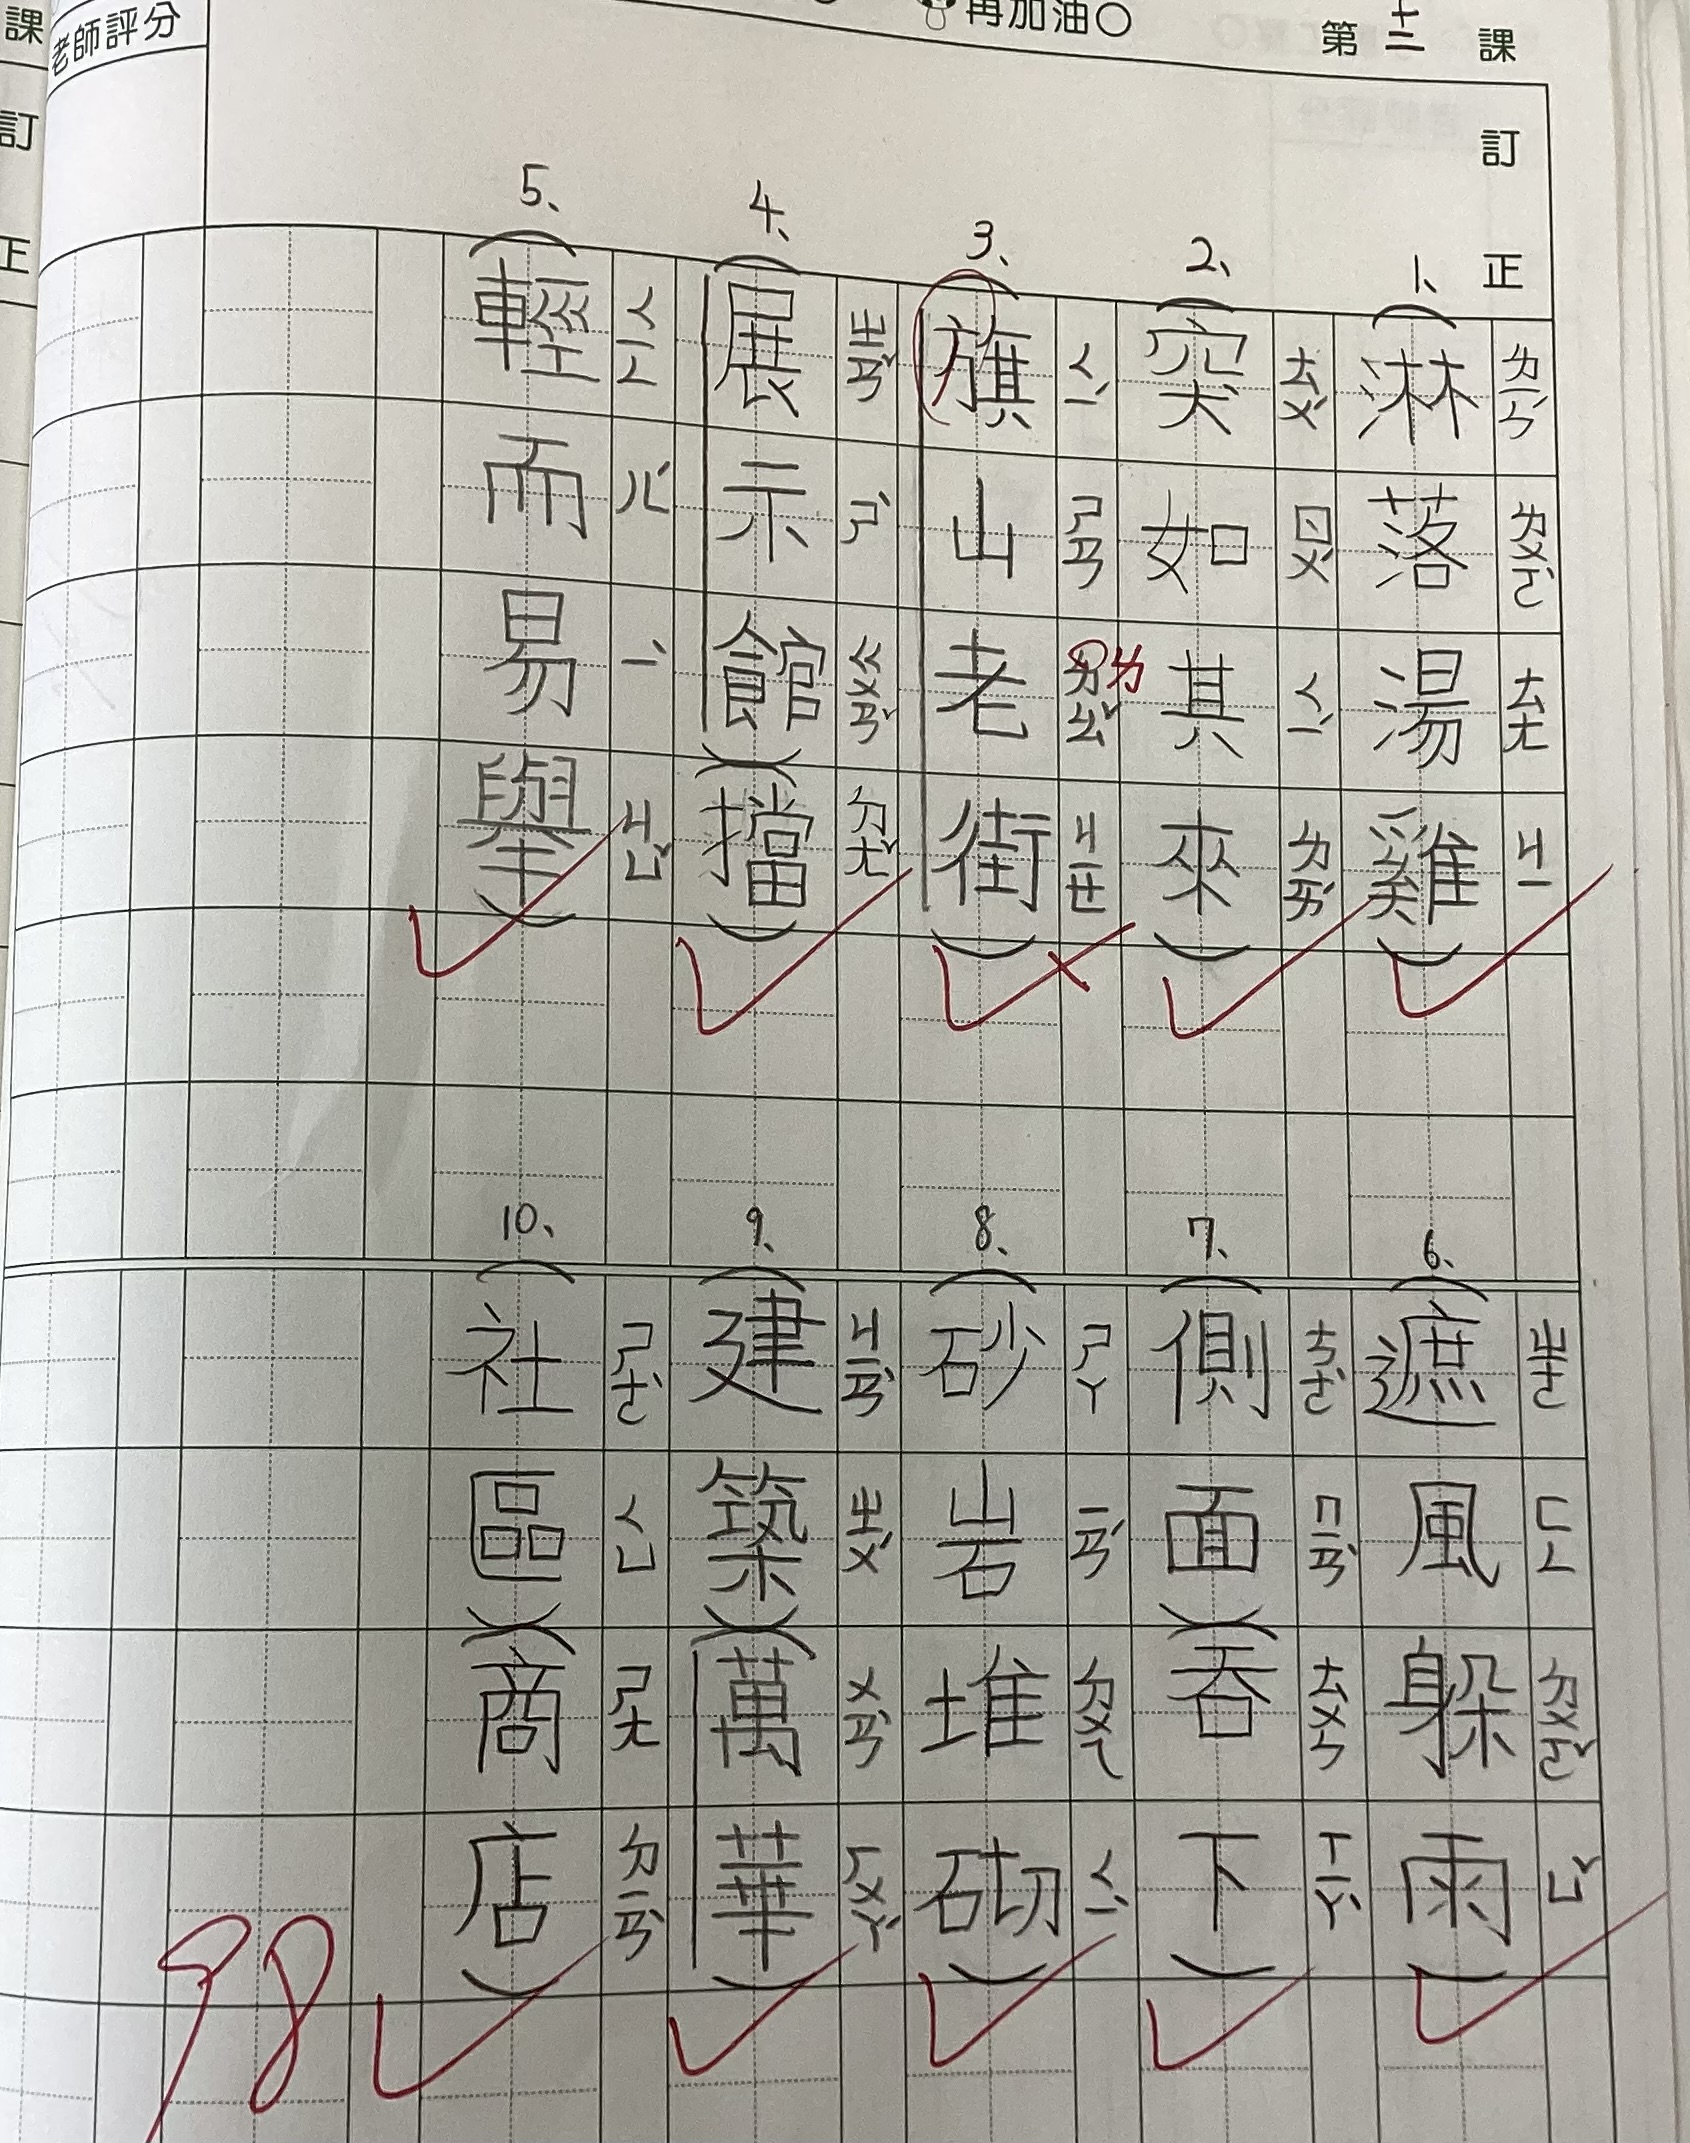 再加油○
第十二課
訂正
老師評分
課訂正
1、(淋落湯雞)
ㄌㄧㄣˊ ㄌㄨㄛˋ ㄊㄤ ㄐㄧ
2、(突如其來)
ㄊㄨˊ ㄖㄨˊ ㄑㄧˊ ㄌㄞˊ
3、(旗山老街)
ㄑㄧˊ ㄕㄢ ㄌㄠˇ ㄐㄧㄝ
ㄌ
4、(展示館)(擋)
ㄓㄢˇ ㄕˋ ㄍㄨㄢˇ ㄉㄤˇ
5、(輕而易舉)
ㄑㄧㄥ ㄦˊ ㄧˋ ㄐㄩˇ
6、(遮風躲雨)
ㄓㄜ ㄈㄥ ㄉㄨㄛˇ ㄩˇ
7、(側面)(吞下)
ㄘㄜˋ ㄇㄧㄢˋ ㄊㄨㄣ ㄒㄧㄚˋ
8、(砂岩堆砌)
ㄕㄚ ㄧㄢˊ ㄉㄨㄟ ㄑㄧˋ
9、(建築)(萬華)
ㄐㄧㄢˋ ㄓㄨˊ ㄨㄢˋ ㄏㄨㄚˊ
10、(社區)(商店)
ㄕㄜˋ ㄑㄩ ㄕㄤ ㄉㄧㄢˋ
98